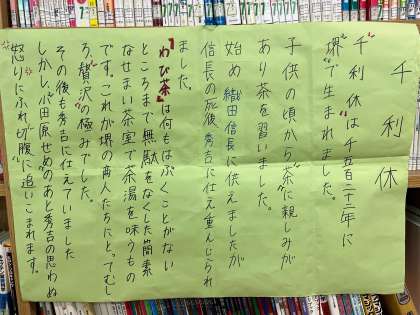 千利休
千利休は千五百二十二年に
堺"で生まれました。
子供の頃から"茶"に親しみが
あり茶を習いました。
始め織田信長に供えましたが
信長の死後秀吉に仕え重んじられ
ました。
『わび茶』は何もはぶくことがない
ところまで無駄をなくした簡素
なせまい茶室で茶湯を味うもの
です。これが堺の商人たちにとってむし
ろ"贅沢"の極みでした。
その後も秀吉に仕えていました
しかし小田原せめのあと秀吉の思わぬ
怒りにふれ切腹に追いこまれます。